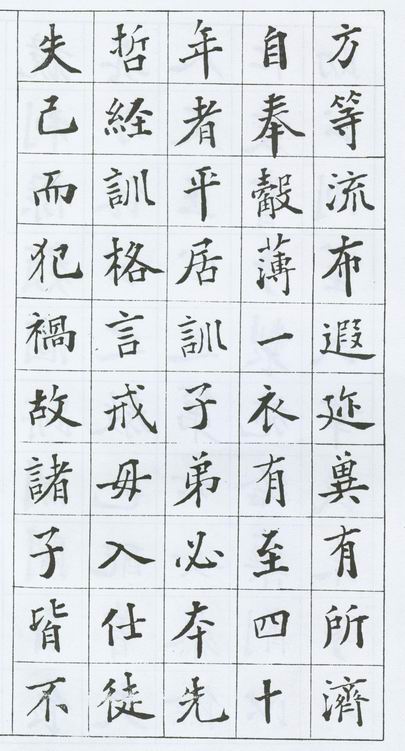 方等流布遐迩冀有所濟
自奉觳薄一衣有至四十
年者平居訓子弟必本先
哲經訓格言戒毋入仕徒
失己而犯禍故諸子皆不